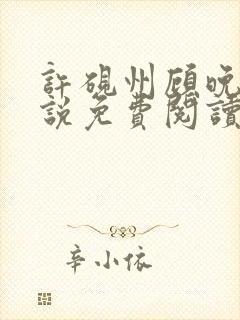 許硯州顧晚
說免費閱讀
辛小依